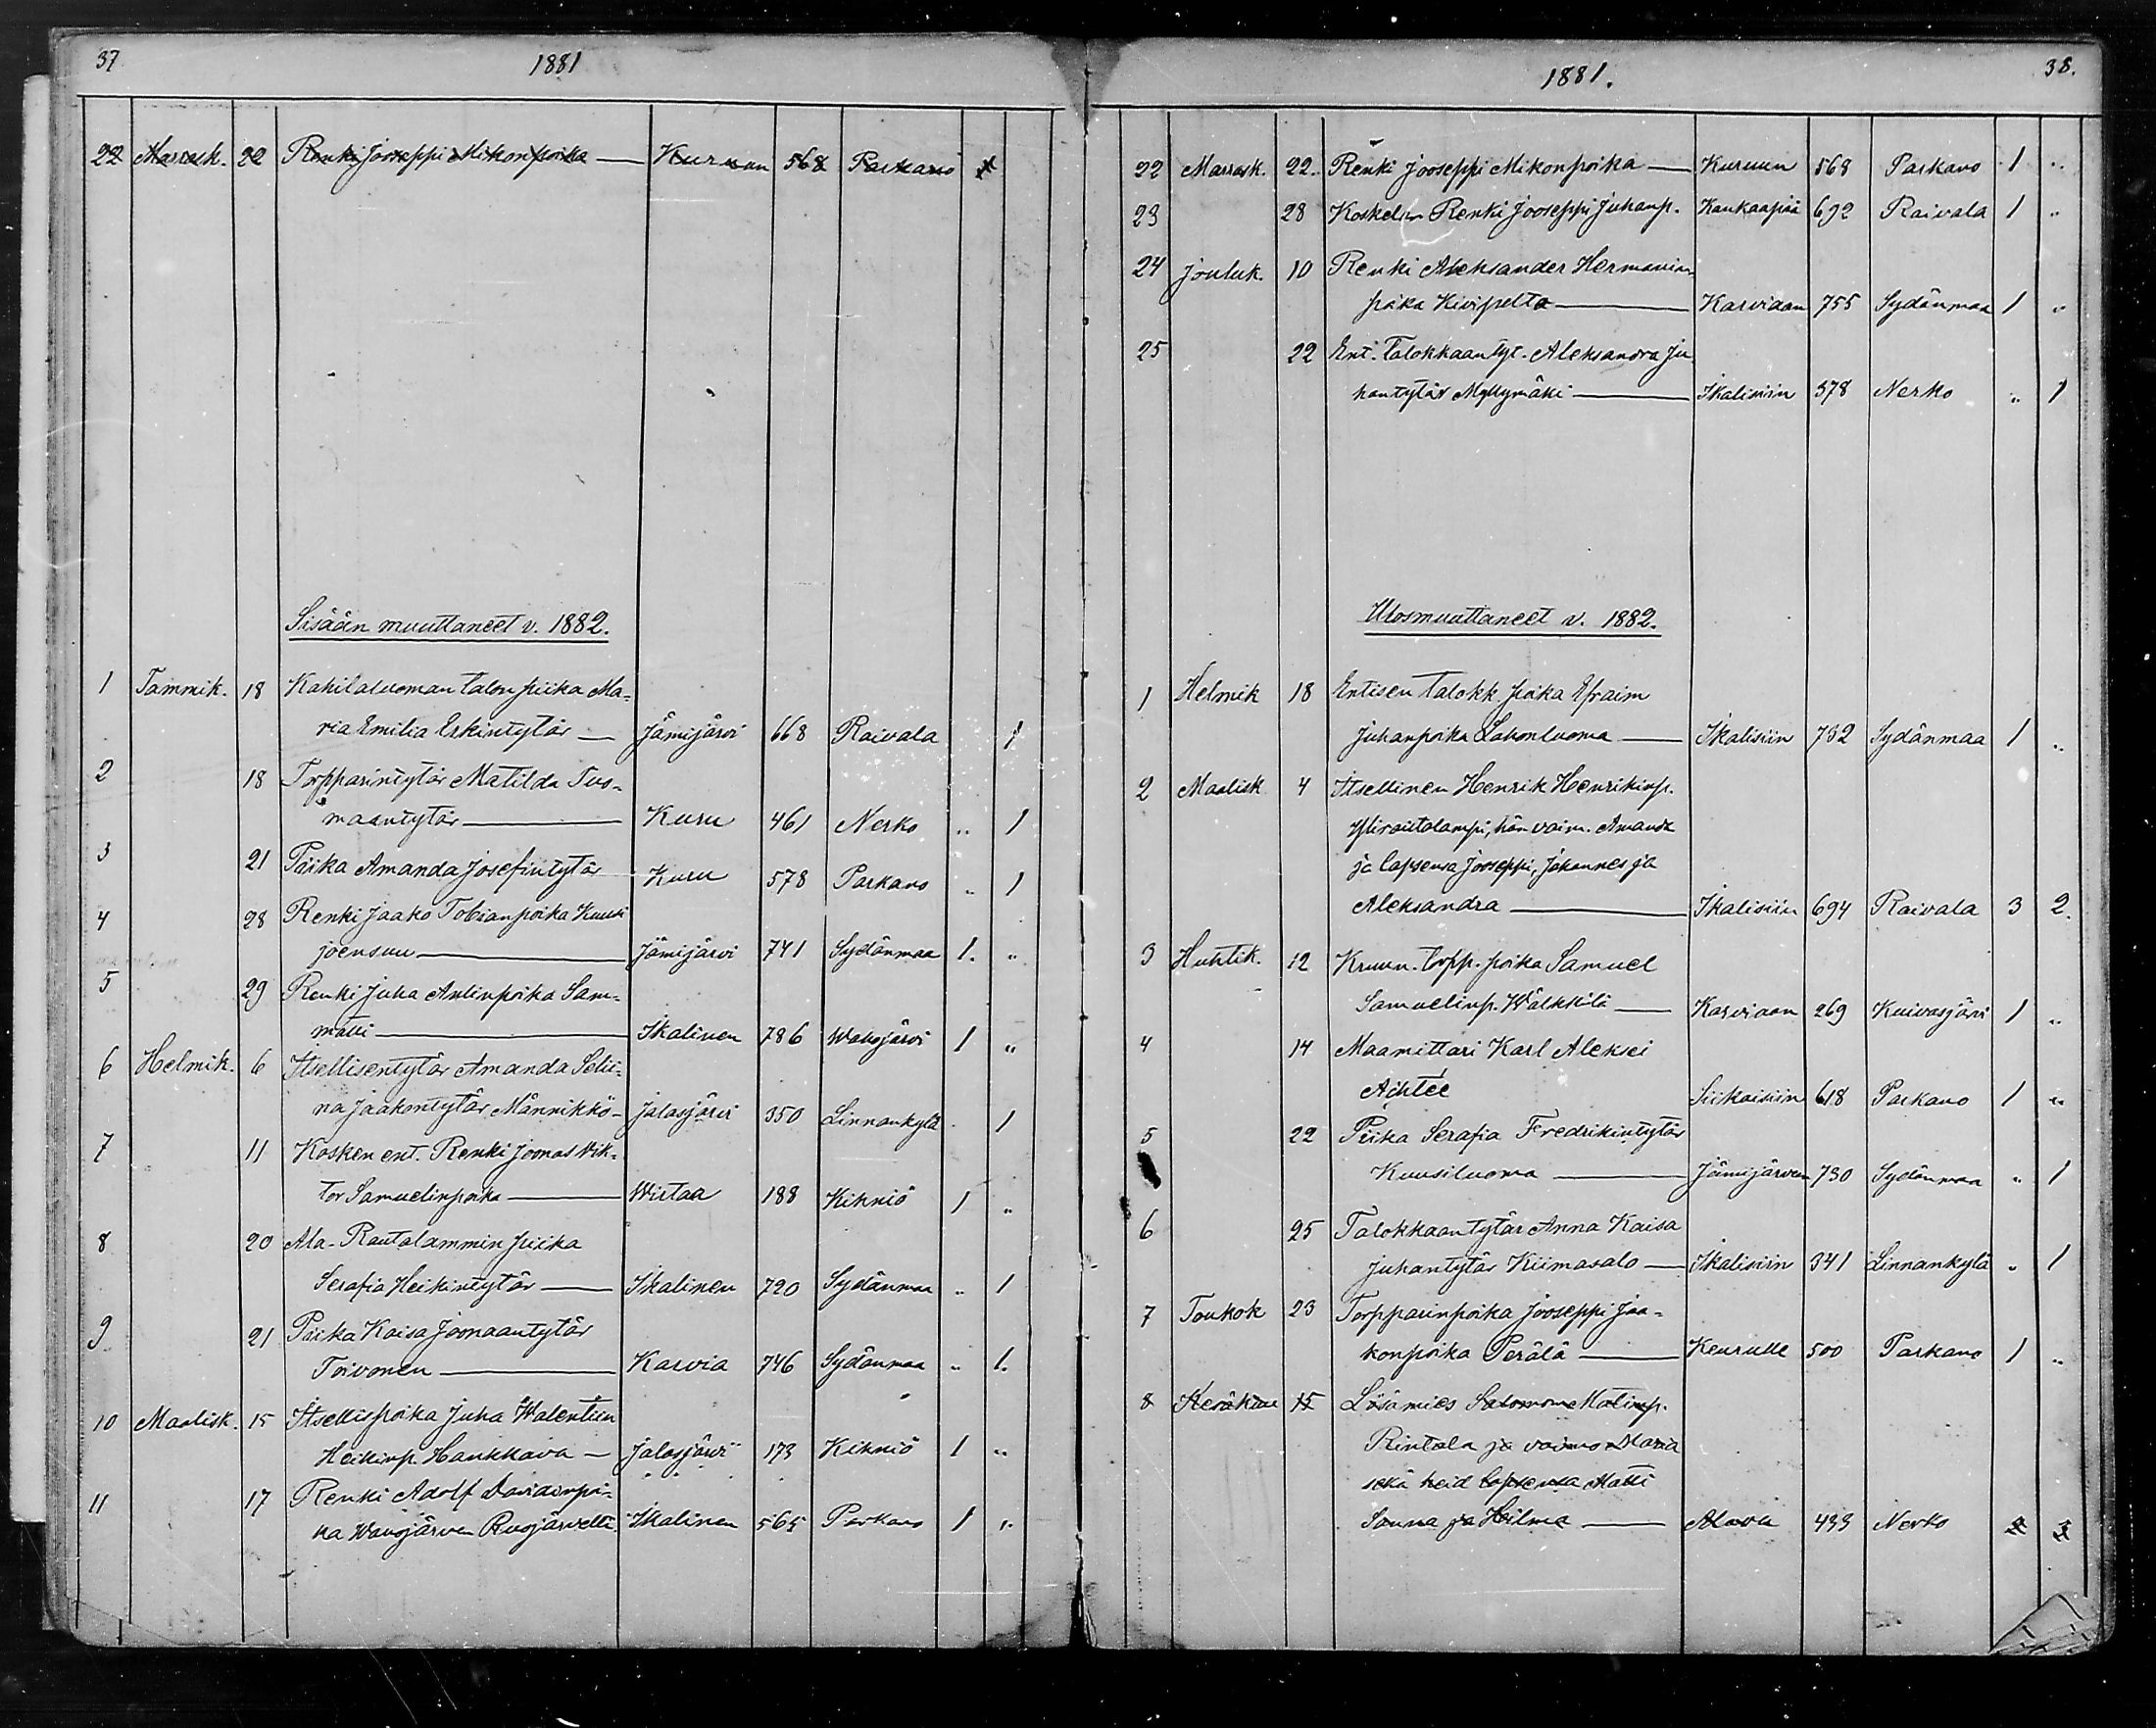 37
1881
22 Marrask. 22 Renki Jooseppi Mikonpoika — Kuruun 568 Parkano 1
Sisään muuttaneet v. 1882.
1 Tammik. 18 Kahilaluoman talon piika Ma-
ria Emilia Erkintytär — Jämijärvi 668 Raivala 1
2 18 Torpparintytär Matilda Tuo-
maantytär — Kuru 461 Nerko „ 1
3 21 Piika Amanda Josefintytär Kuru 578 Parkano „ 1
4 28 Renki Jaako Tobianpoika Kuusi
joensuu — Jämijärvi 741 Sydänmaa 1. „
5 29 Renki Juha Antinpoika Sam-
matti — Ikalinen 786 Wavosjärvi 1 „
6 Helmik. 6 Itsellisentytär Amanda Selii-
na Jaakontytär Männikkö - Jalasjärvi 350 Linnankylä 1
7 11 Kosken ent. Renki Joonas Wik-
tor Samuelinpoika — Wirtaa 188 Kihniö 1 „
8 20 Ala-Rautalammin piika
Serafia Heikintytär — Ikalinen 720 Sydänmaa „ 1
9 21 Piika Kaisa Joonaantytär
Toivonen — Karvia 746 Sydänmaa „ 1.
10 Maalisk. 15 Itsellispoika Juha Walentiin
Heikinp. Hankkava — Jalasjärvi 173 Kihniö 1 „
11 17 Renki Adolf Davidinpoi-
ka Wavosjärven Ruojärveltä Ikalinen 565 Parkano 1 „
1881.
38.
22 Marrask. 22. Renki Jooseppi Mikonpoika — Kuruun 568 Parkano 1 „
23 28 Koskelin Renki Jooseppi Juhanp. Kankaapää 692 Raivala 1 „
24 Jouluk. 10 Renki Aleksander Hermanin
poika Kivipelto — Karviaan 755 Sydänmaa 1 „
25 22 Ent. Talokkaan tyt. Aleksandra Ju
hantytär Myllymäki — Ikalisiin 578 Nerko „ 1
Ulosmuuttaneet v. 1882.
1 Helmik 18 Entisen Talokk. poika Efraim
Juhanpoika Lahonluoma — Ikalisiin 732 Sydänmaa 1 „
2 Maalisk 4 Itsellinen Henrik Henrikinp.
Ylirautalampi, hän vaim. Amanda
ja lapsensa Jooseppi, Johannes ja
Aleksandra — Ikalisiin 694 Raivala 3 2.
3 Huhtik. 12 Kruun. torpp. poika Samuel
Samuelinp. Wälkkilä — Karviaan 269 Kuivasjärvi 1 „
4 14 Maamittari Karl Aleksei
Achtée Siikaisiin 618 Parkano 1 „
5 22 Piika Serafia Fredrikintytär
Kuusiluoma — Jämijärven 730 Sydänmaa „ 1
6 25 Talokkaantytär Anna Kaisa
Juhantytär Kiimasalo — Ikalisiin 341 Linnankylä „ 1
7 Toukok 23 Torpparinpoika Jooseppi Jaa-
konpoika Perälä — Keuruulle 500 Parkano 1 „
8 Kesäkuu 15 Lösämies Salomon Matinp.
Rintala ja vaimo Maria
sekä heid lapsensa Matti
Sanna ja Hilma — Alavu 433 Nerko 2 3